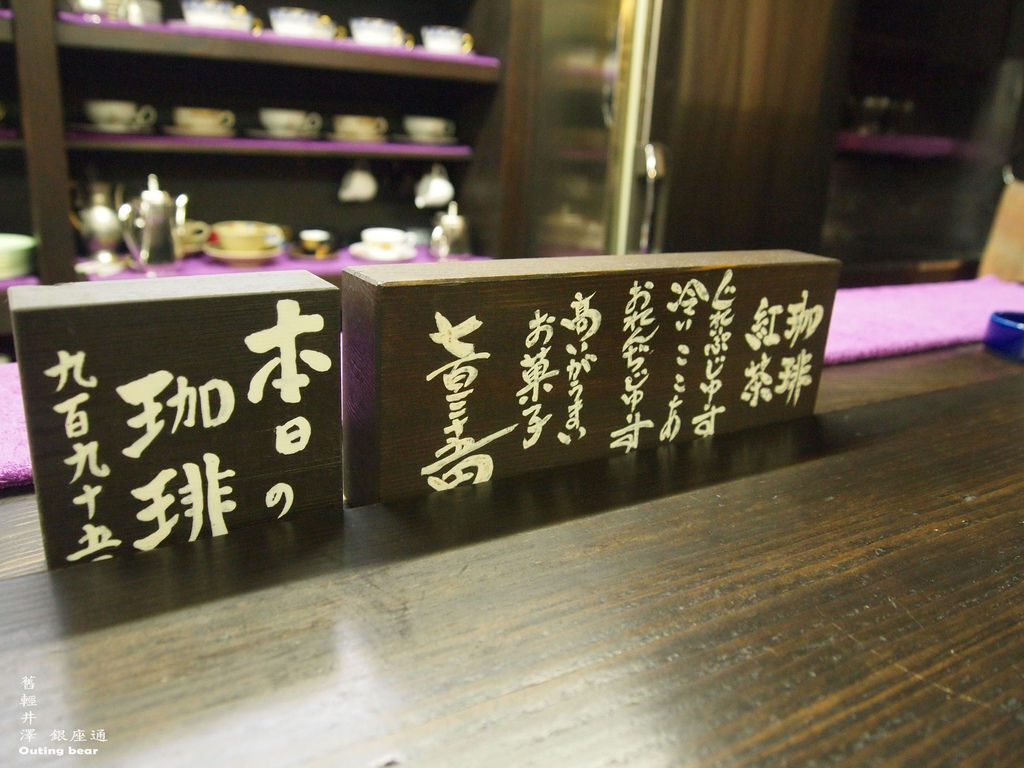 本日の
珈琲
九百九十五
珈琲
紅茶
ぐれーぷじゅーす
冷いここあ
おれんじじゅーす
高いがうまい
お菓子
舊輕井澤 銀座通
Outing bear